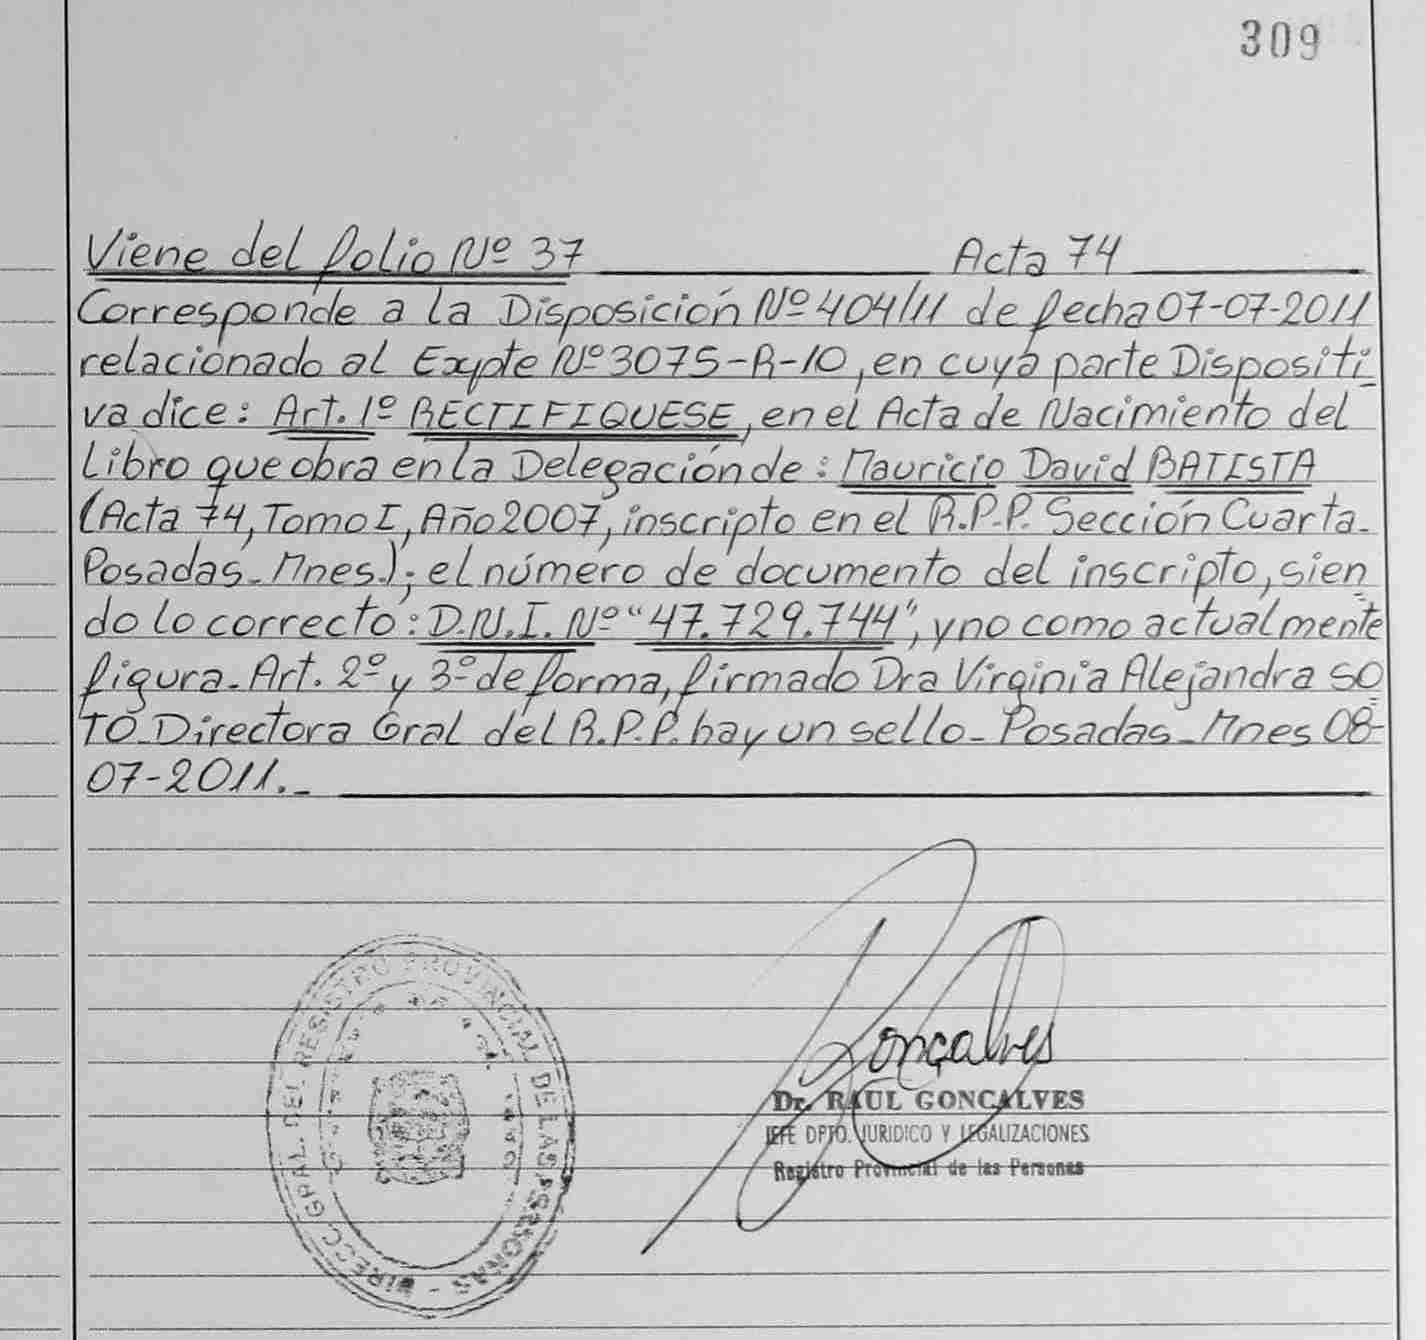 309
Viene del folio Nº 37 Acta 74
Corresponde a la Disposición Nº 404/11 de fecha 07-07-2011
relacionado al Expte Nº 3075-R-10, en cuya parte Dispositi
va dice: Art. 1º RECTIFIQUESE, en el Acta de Nacimiento del
Libro que obra en la Delegación de: Mauricio David BATISTA
(Acta 74, Tomo I, Año 2007, inscripto en el R.P.P. Sección Cuarta-
Posadas-Mnes.); el número de documento del inscripto, sien
do lo correcto: D.N.I. Nº "47.729.744", y no como actualmente
figura-Art. 2º y 3º de forma, firmado Dra Virginia Alejandra SO
TO-Directora Gral del R.P.P. hay un sello-Posadas-Mnes 08-
07-2011.-
Goncalves
Dr. RAUL GONCALVES
JEFE DPTO. JURIDICO Y LEGALIZACIONES
Registro Provincial de las Personas
DIRECC. GRAL. DEL REGISTRO PROVINCIAL DE LAS PERSONAS -